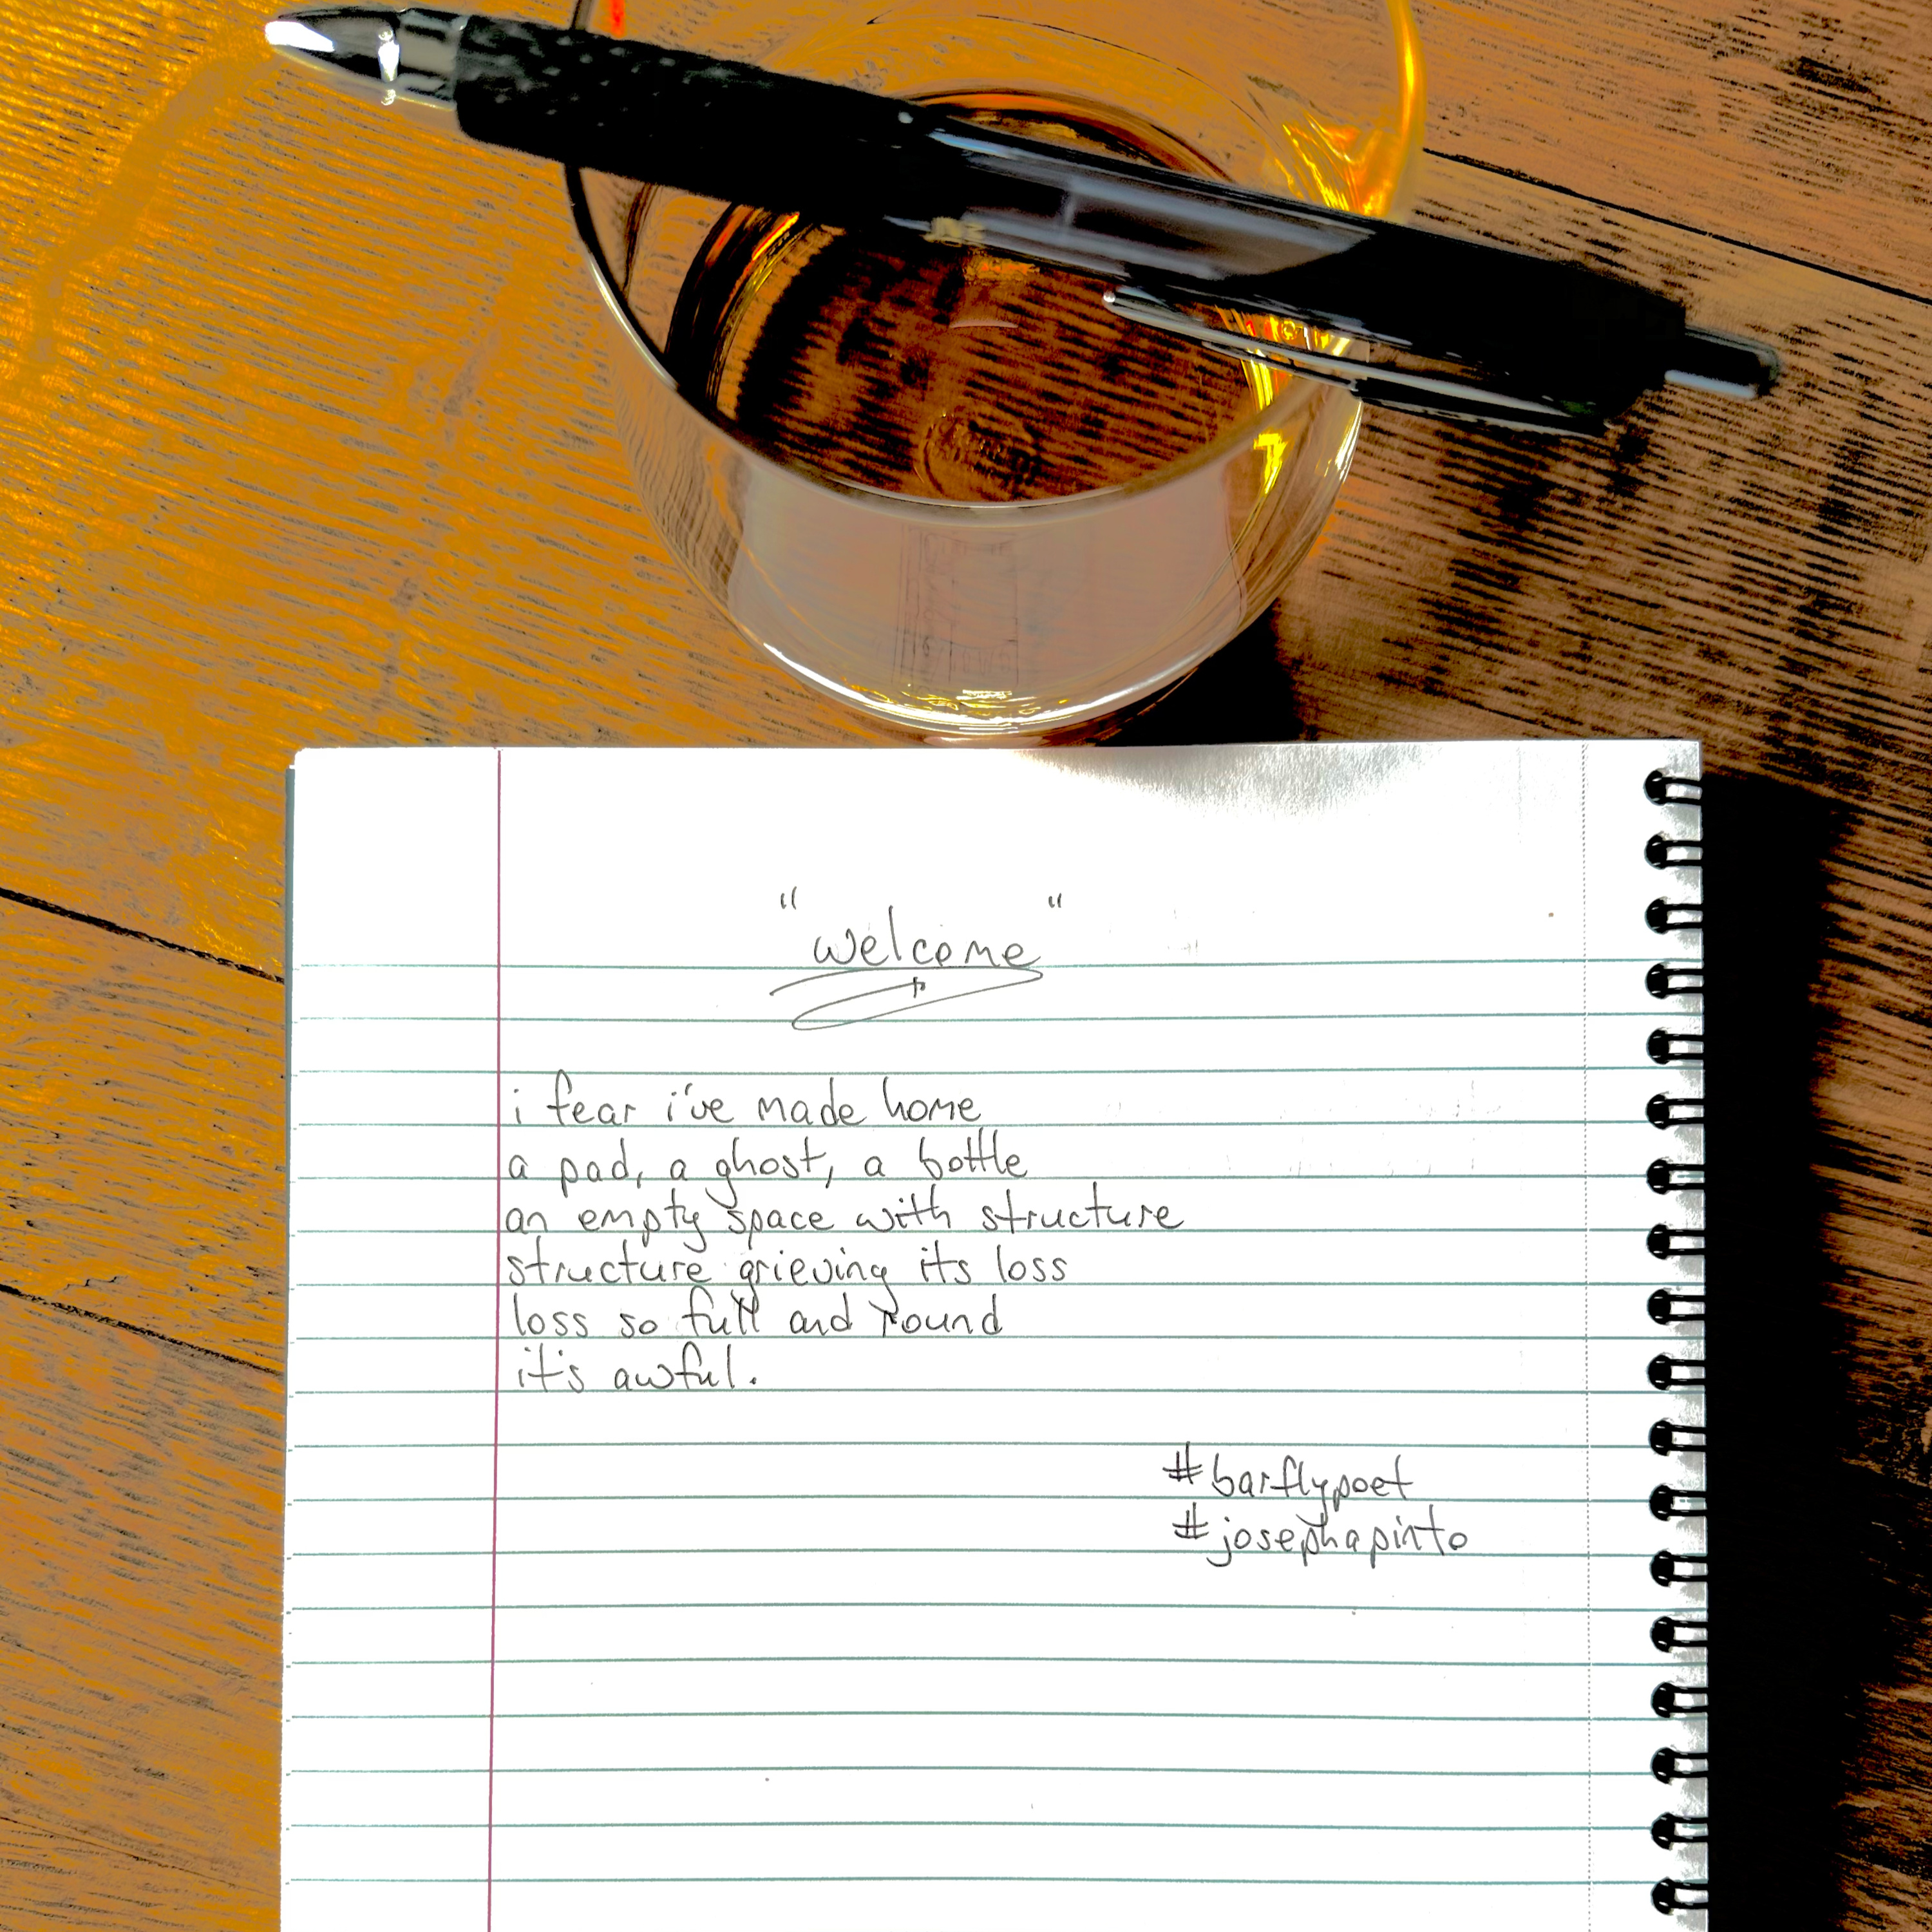 "welcome"
i fear i've made home
a pad, a ghost, a bottle
an empty space with structure
structure grieving its loss
loss so full and round
it's awful.
#barflypoet
#josephapinto